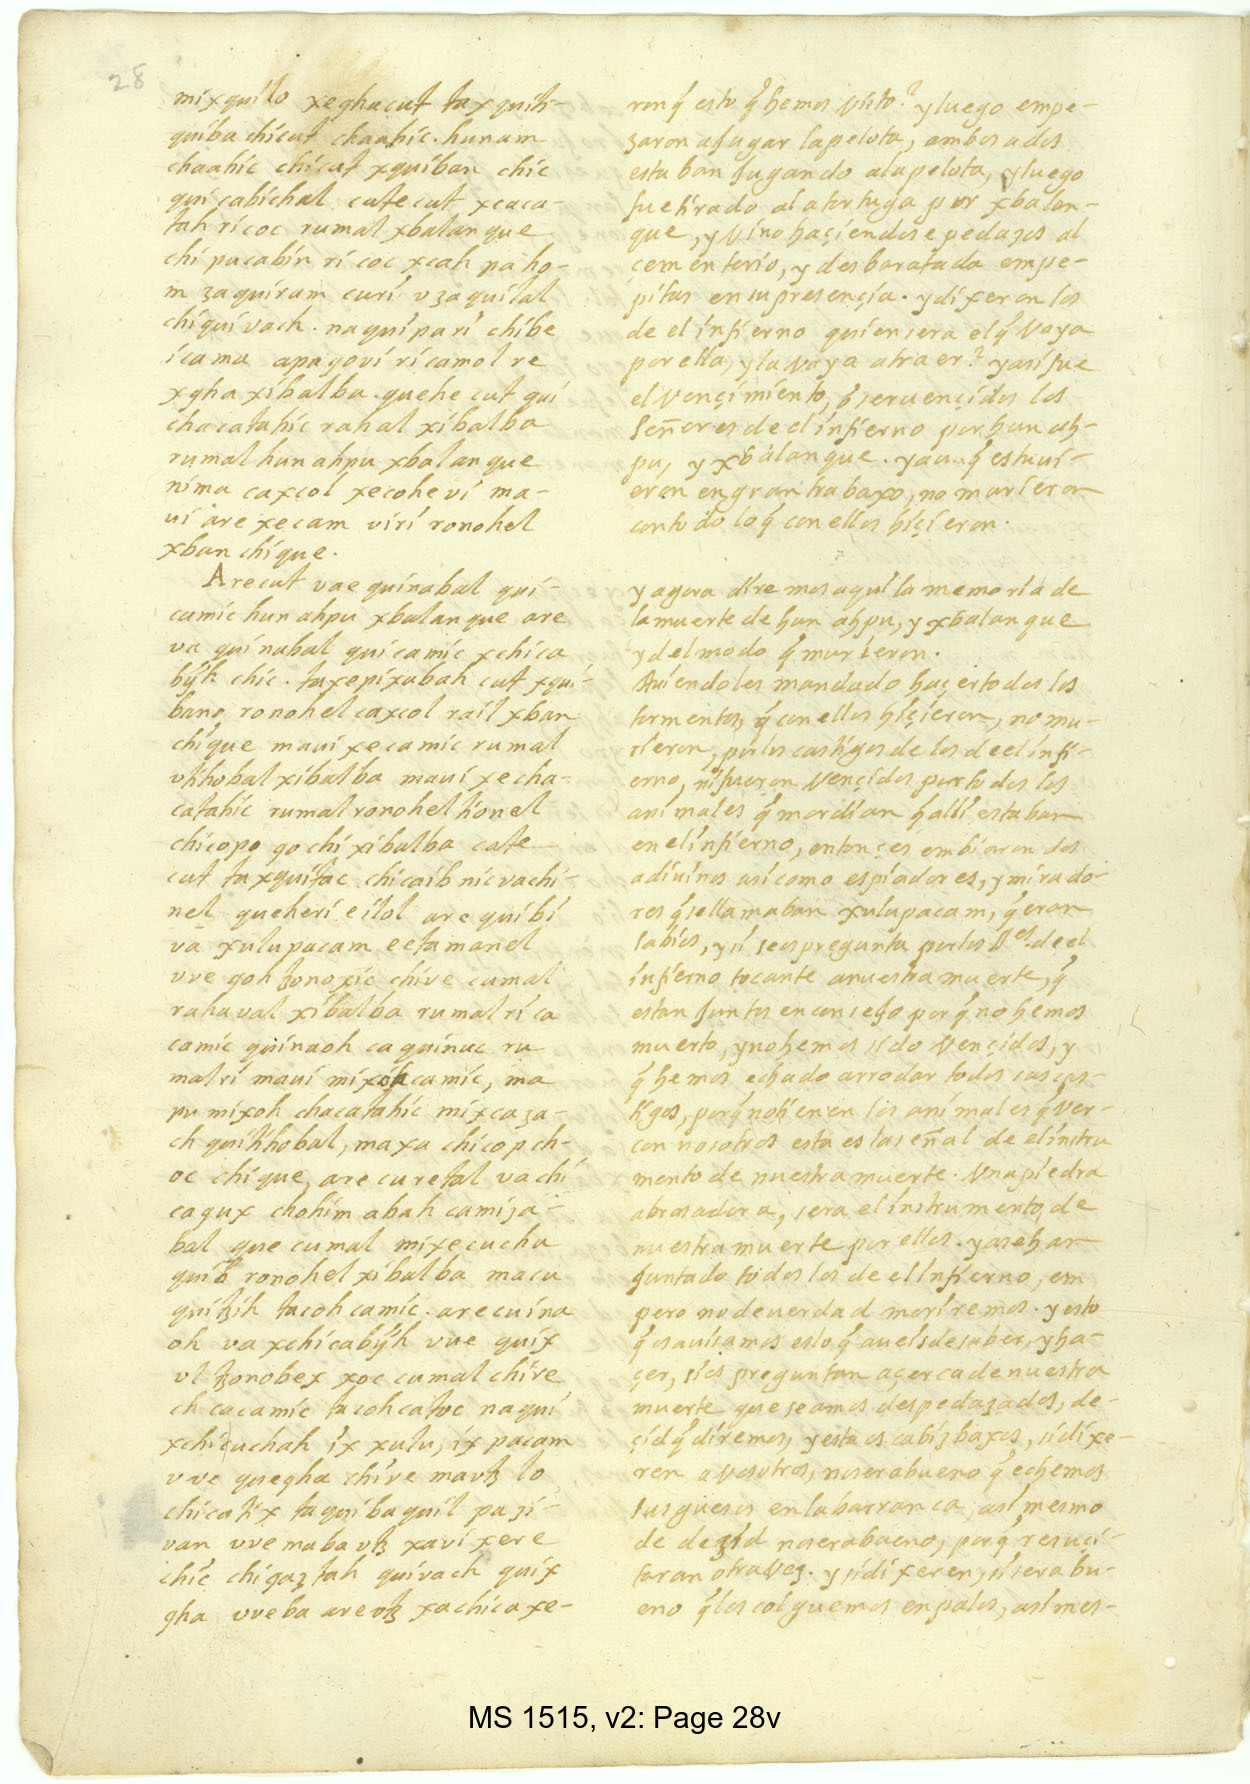 28
mixquilo xeghacut tax quih-
quiba chicut chaahic. hunam
chaahic chicut xquiban chic
qui cabichal catecut xcaca-
tah ri coc rumal xbalanque
chi pucabin ri coc xcah pa ho-
m zaquiram curi vzaquilal
chiquivach. naquipari chibe
icama apagovi ricamol re
xgha xibalba. quehe cut qui
chacatahic rahal xibalba
rumal hun ahpu xbalanque
nima caxcol xecohevi ma-
vi are xecam viri ronohel
xban chique.
Arecut vae quinabal qui-
camic hun ahpu xbalanque are
va quinabal quicamic xchica
bÿh chic. taxepixabah cut xqui-
bano ronohel caxcol rail xban
chique mavi xecamic rumal
vhihobal xibalba mavi xecha-
catahic rumal ronohel tionel
chicopo go chi xibalba cate
cut taxquitac chicaib nicvachi-
nel queheri e ilol are quibi
va xulupacam e etamanel
vve goh tzonoxic chive cumal
rahaval xibalba rumal ri ca
camic quinaoh caquinuc ru
mal ri mavi mixoh camic, ma
pu mixoh chacatahic mixcaza-
ch quihihobal, maxa chicop ch-
oc chique, are curetal vachi
cagux chohim abah camiza-
bal que cumal mixecuchu
quib ronohel xibalba macu
quitzih tacoh camic. arecuina
oh va xchicabÿh vue quix
ul tzonobex xoc cumal chire
ch cacamic tacoh catoc naqui
xchicuchah ix xulu, ix pacam
vve quegha chive mavtz lo
chicatix taquibaquil pa zi-
van vve mabavtz xavi xere
chic chigaztah quivach quix
gha vveba arevtz xachicaxe-
ron q̃ esto q̃ hemos visto? y luego empe-
zaron a jugar la pelota, ambos a dos
estaban jugando a la pelota, y luego
fue tirado a la tortuga por xbalan-
que, y vino haçiendose pedazos al
çementerio, y desbaratada empe-
pitas en su presençia. y dixeron los
de el infierno quien sera el q̃ vaya
por ella, y la vaya a traer? y asi fue
el vençimiento, o ser vençidos los
señores de el infierno por hun ah-
pu, y xbalanque. y aun q̃ estuvi-
eron en gran trabaxo, no murieron
con todo lo q̃ con ellos hiçieron.
y agora diremos aqui la memoria de
la muerte de hun ahpu, y xbalanque
y del modo q̃ murieron.
Auiendoles mandado haçer todos los
tormentos, q̃ con ellos hiçieron, no mu-
rieron, por los castigos de los de el infi-
erno, ni fueron vençidos por todos los
animales q̃ mordian q̃ alli estaban
en el infierno, entonçes embiaron dos
adiuinos asi como espiadores, y mirado-
res q̃ se llamaban xulupacam, q̃ eran
sabios, y si se os pregunta por los Sres. de el
infierno tocante a nuestra muerte, q̃
estan juntos en consejo por q̃ no hemos
muerto, y no hemos sido vençidos, y
q̃ hemos echado a rrodar todos sus cas-
tigos, por q̃ no tienen los animales q̃ ver-
con nosotros esta es la señal de el instru
mento de nuestra muerte. Una piedra
abrasadora, sera el instrumento, de
nuestra muerte por ellos. y ase han
juntado todos los de el infierno, em
pero no de uerdad moriremos. y esto
q̃ os auisamos es lo q̃ aueis de saber, y ha-
çer, si os preguntan açerca de nuestra
muerte que seamos despedazados, de-
çid q̃ diremos, y esta os cabizbaxos, si dixe-
ren a vosotros, no sera bueno q̃ echemos
sus guesos en la barranca, asi mesmo
de dezid no sera bueno, porq̃ resuçi-
taran otra vez. y si dixeren, si sera bu-
eno q̃ los colguemos en palos, asi mes-
MS 1515, v2: Page 28v